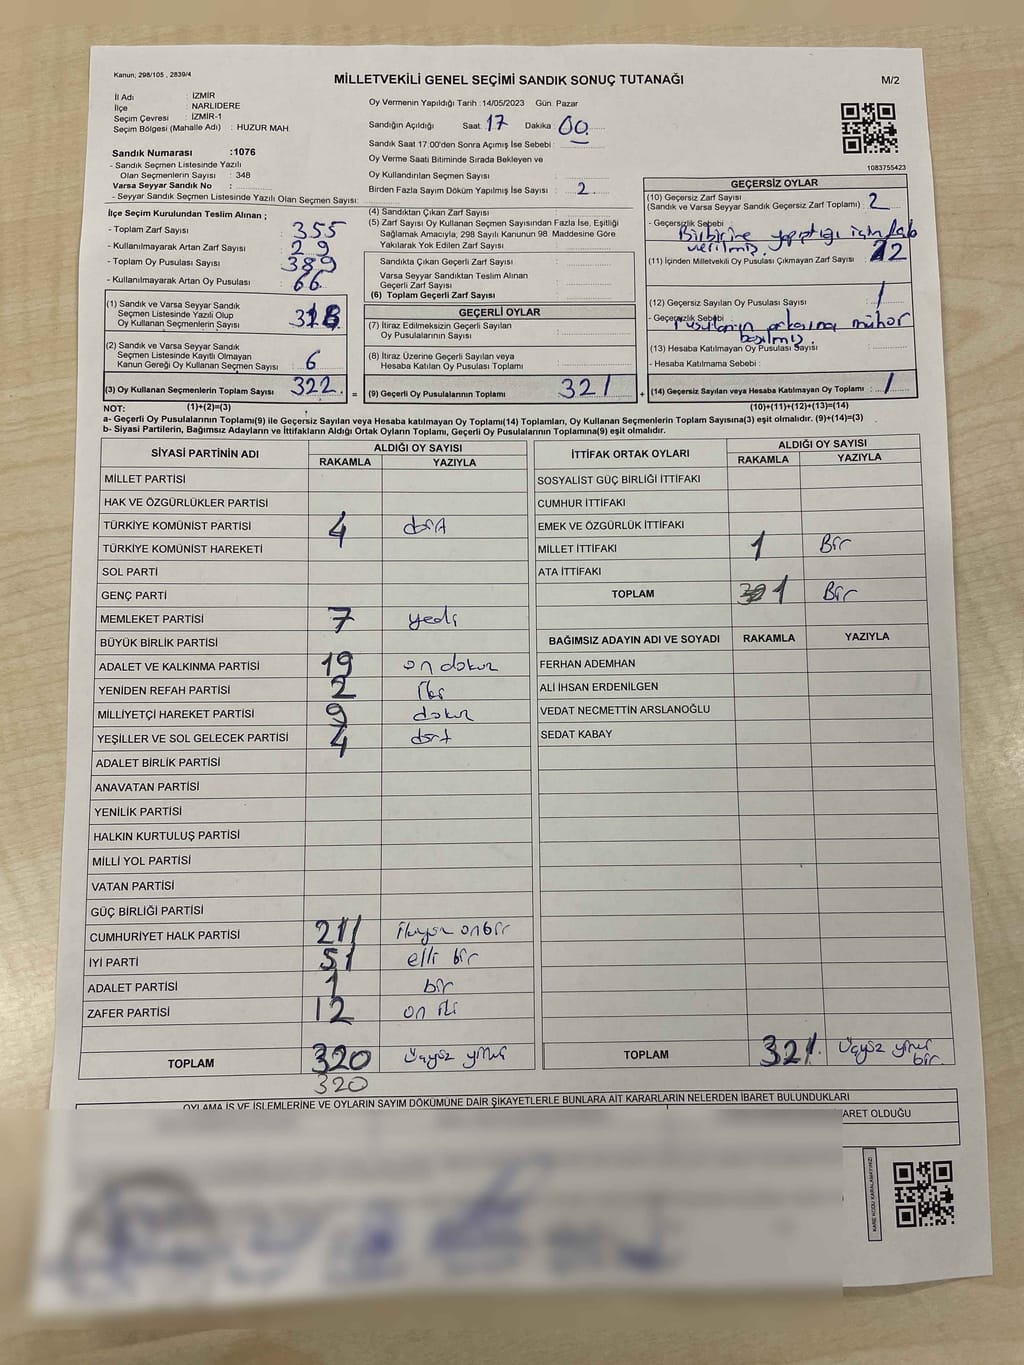 Kanun; 298/105 , 2839/4
MİLLETVEKİLİ GENEL SEÇİMİ SANDIK SONUÇ TUTANAĞI
M/2
İl Adı : İZMİR
İlçe : NARLIDERE
Seçim Çevresi : İZMİR-1
Seçim Bölgesi (Mahalle Adı) : HUZUR MAH.
Sandık Numarası :1076
- Sandık Seçmen Listesinde Yazılı
Olan Seçmenlerin Sayısı : 348
Varsa Seyyar Sandık No :
- Seyyar Sandık Seçmen Listesinde Yazılı Olan Seçmen Sayısı:
Oy Vermenin Yapıldığı Tarih :14/05/2023 Gün: Pazar
Sandığın Açıldığı Saat: 17 Dakika : 00
Sandık Saat 17.00'den Sonra Açımış İse Sebebi :
Oy Verme Saati Bitiminde Sırada Bekleyen ve
Oy Kullandırılan Seçmen Sayısı :
Birden Fazla Sayım Döküm Yapılmış İse Sayısı : 2
1083755423
İlçe Seçim Kurulundan Teslim Alınan ;
- Toplam Zarf Sayısı : 355
- Kullanılmayarak Artan Zarf Sayısı : 29
- Toplam Oy Pusulası Sayısı : 389
- Kullanılmayarak Artan Oy Pusulası : 66
(1) Sandık ve Varsa Seyyar Sandık
Seçmen Listesinde Yazılı Olup
Oy Kullanan Seçmenlerin Sayısı :
(2) Sandık ve Varsa Seyyar Sandık
Seçmen Listesinde Kayıtlı Olmayan
Kanun Gereği Oy Kullanan Seçmen Sayısı : 6
(3) Oy Kullanan Seçmenlerin Toplam Sayısı : 322
(4) Sandıktan Çıkan Zarf Sayısı :
(5) Zarf Sayısı Oy Kullanan Seçmen Sayısından Fazla İse, Eşitliği
Sağlamak Amacıyla, 298 Sayılı Kanunun 98. Maddesine Göre
Yakılarak Yok Edilen Zarf Sayısı :
Sandıkta Çıkan Geçerli Zarf Sayısı :
Varsa Seyyar Sandıktan Teslim Alınan
Geçerli Zarf Sayısı :
(6) Toplam Geçerli Zarf Sayısı :
GEÇERLİ OYLAR
(7) İtiraz Edilmeksizin Geçerli Sayılan
Oy Pusulalarının Sayısı :
(8) İtiraz Üzerine Geçerli Sayılan veya
Hesaba Katılan Oy Pusulaları Toplamı :
= (9) Geçerli Oy Pusulalarının Toplamı : 321
GEÇERSİZ OYLAR
(10) Geçersiz Zarf Sayısı
(Sandık ve Varsa Seyyar Sandık Geçersiz Zarf Toplamı) : 2
- Geçersizlik Sebebi : Birbirine yapıştığı için
verilmiş.
(11) İçinden Milletvekili Oy Pusulası Çıkmayan Zarf Sayısı :
(12) Geçersiz Sayılan Oy Pusulası Sayısı : 1
- Geçersizlik Sebebi : Pusulanın arkasına mühür
basılmış.
(13) Hesaba Katılmayan Oy Pusulası Sayısı :
- Hesaba Katılmama Sebebi :
+ (14) Geçersiz Sayılan veya Hesaba Katılmayan Oy Toplamı : 1
NOT: (1)+(2)=(3)
(10)+(11)+(12)+(13)=(14)
a- Geçerli Oy Pusulalarının Toplamı(9) ile Geçersiz Sayılan veya Hesaba katılmayan Oy Toplamı(14) Toplamları, Oy Kullanan Seçmenlerin Toplam Sayısına(3) eşit olmalıdır. (9)+(14)=(3)
b- Siyasi Partilerin, Bağımsız Adayların ve İttifakların Aldığı Ortak Oyların Toplamı, Geçerli Oy Pusulalarının Toplamına(9) eşit olmalıdır.
SİYASİ PARTİNİN ADI ALDIĞI OY SAYISI
RAKAMLA YAZIYLA
MİLLET PARTİSİ
HAK VE ÖZGÜRLÜKLER PARTİSİ
TÜRKİYE KOMÜNİST PARTİSİ 4 dört
TÜRKİYE KOMÜNİST HAREKETİ
SOL PARTİ
GENÇ PARTİ
MEMLEKET PARTİSİ 7 yedi
BÜYÜK BİRLİK PARTİSİ
ADALET VE KALKINMA PARTİSİ 19 on dokuz
YENİDEN REFAH PARTİSİ 2 iki
MİLLİYETÇİ HAREKET PARTİSİ 9 dokuz
YEŞİLLER VE SOL GELECEK PARTİSİ 4 dört
ADALET BİRLİK PARTİSİ
ANAVATAN PARTİSİ
YENİLİK PARTİSİ
HALKIN KURTULUŞ PARTİSİ
MİLLİ YOL PARTİSİ
VATAN PARTİSİ
GÜÇ BİRLİĞİ PARTİSİ
CUMHURİYET HALK PARTİSİ 211 ikiyüz onbir
İYİ PARTİ 51 elli bir
ADALET PARTİSİ 1 bir
ZAFER PARTİSİ 12 on iki
TOPLAM 320 Üçyüz yirmi
320
İTTİFAK ORTAK OYLARI ALDIĞI OY SAYISI
RAKAMLA YAZIYLA
SOSYALİST GÜÇ BİRLİĞİ İTTİFAKI
CUMHUR İTTİFAKI
EMEK VE ÖZGÜRLÜK İTTİFAKI
MİLLET İTTİFAKI 1 Bir
ATA İTTİFAKI
TOPLAM 1 Bir
BAĞIMSIZ ADAYIN ADI VE SOYADI RAKAMLA YAZIYLA
FERHAN ADEMHAN
ALİ İHSAN ERDENİLGEN
VEDAT NECMETTİN ARSLANOĞLU
SEDAT KABAY
TOPLAM 321 Üçyüz yirmi
bir
OYLAMA İŞ VE İŞLEMLERİNE VE OYLARIN SAYIM DÖKÜMÜNE DAİR ŞİKAYETLERLE BUNLARA AİT KARARLARIN NELERDEN İBARET BULUNDUKLARI
ARET OLDUĞU
KARE KODU KARALAMAYINIZ!